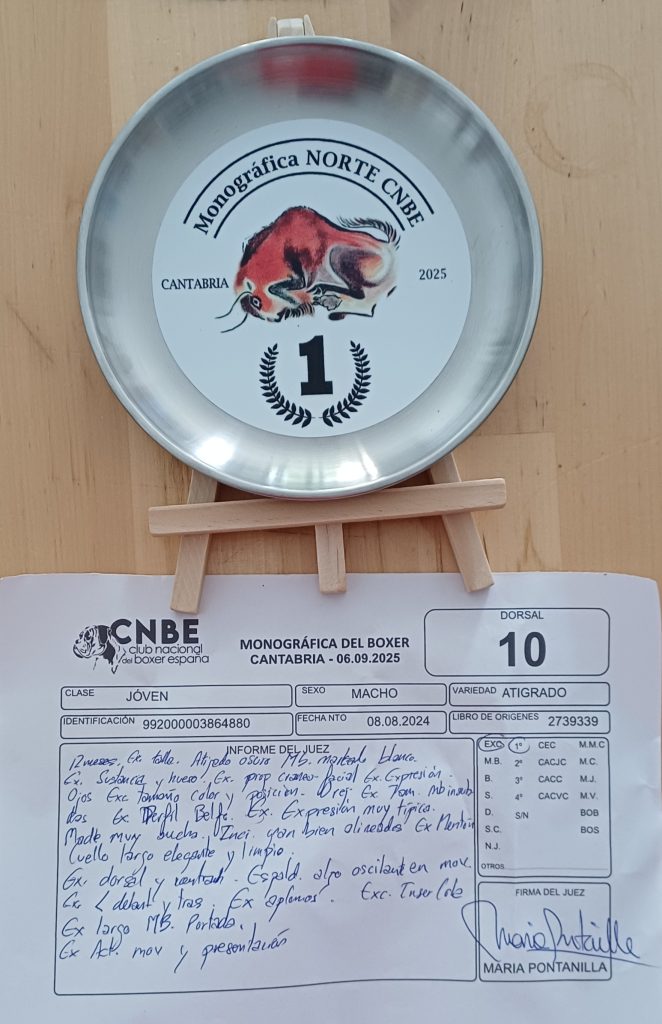 Monográfica NORTE CNBE
CANTABRIA 2025
1
CNBE
club nacional
del boxer españa
MONOGRÁFICA DEL BOXER
CANTABRIA - 06.09.2025
DORSAL
10
CLASE JÓVEN
SEXO MACHO
VARIEDAD ATIGRADO
IDENTIFICACIÓN 992000003864880
FECHA NTO 08.08.2024
LIBRO DE ORIGENES 2739339
INFORME DEL JUEZ
12 meses. Ex talla. Atigrado oscuro MB. manteado blanco.
Ex. Sustancia y hueso. Ex. prop craneo-facial Ex. Expresión.
Ojos Exc tamaño color y posición. Orej Ex Tam. mb inserta
das Ex Perfil Belfo. Ex. Expresión muy típica.
muy ancha. Inci. bien alineados Ex Mentón
Cuello largo elegante y limpio.
Ex. dorsal y ventral. Espald. algo oscilante en mov.
Ex < delant y tras. Ex aplomos. Exc. Inser Cola
Ex largo MB. Portada.
Ex Act. mov y presentación
EXC 1º CEC M.M.C
M.B. 2º CACJC M.C.
B. 3º CACC M.J.
S. 4º CACVC M.V.
D. S/N BOB
S.C. BOS
N.J.
OTROS
FIRMA DEL JUEZ
Maria Pontanilla
MARIA PONTANILLA